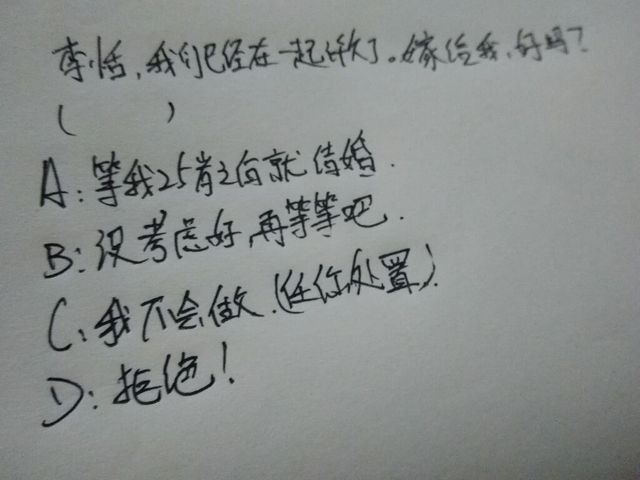 李恬,我们已经在一起许久了。嫁给我,好吗?
( )
A:等我25岁之后就结婚.
B:没考虑好,再等等吧.
C:我不会做.(任你处置).
D:拒绝!